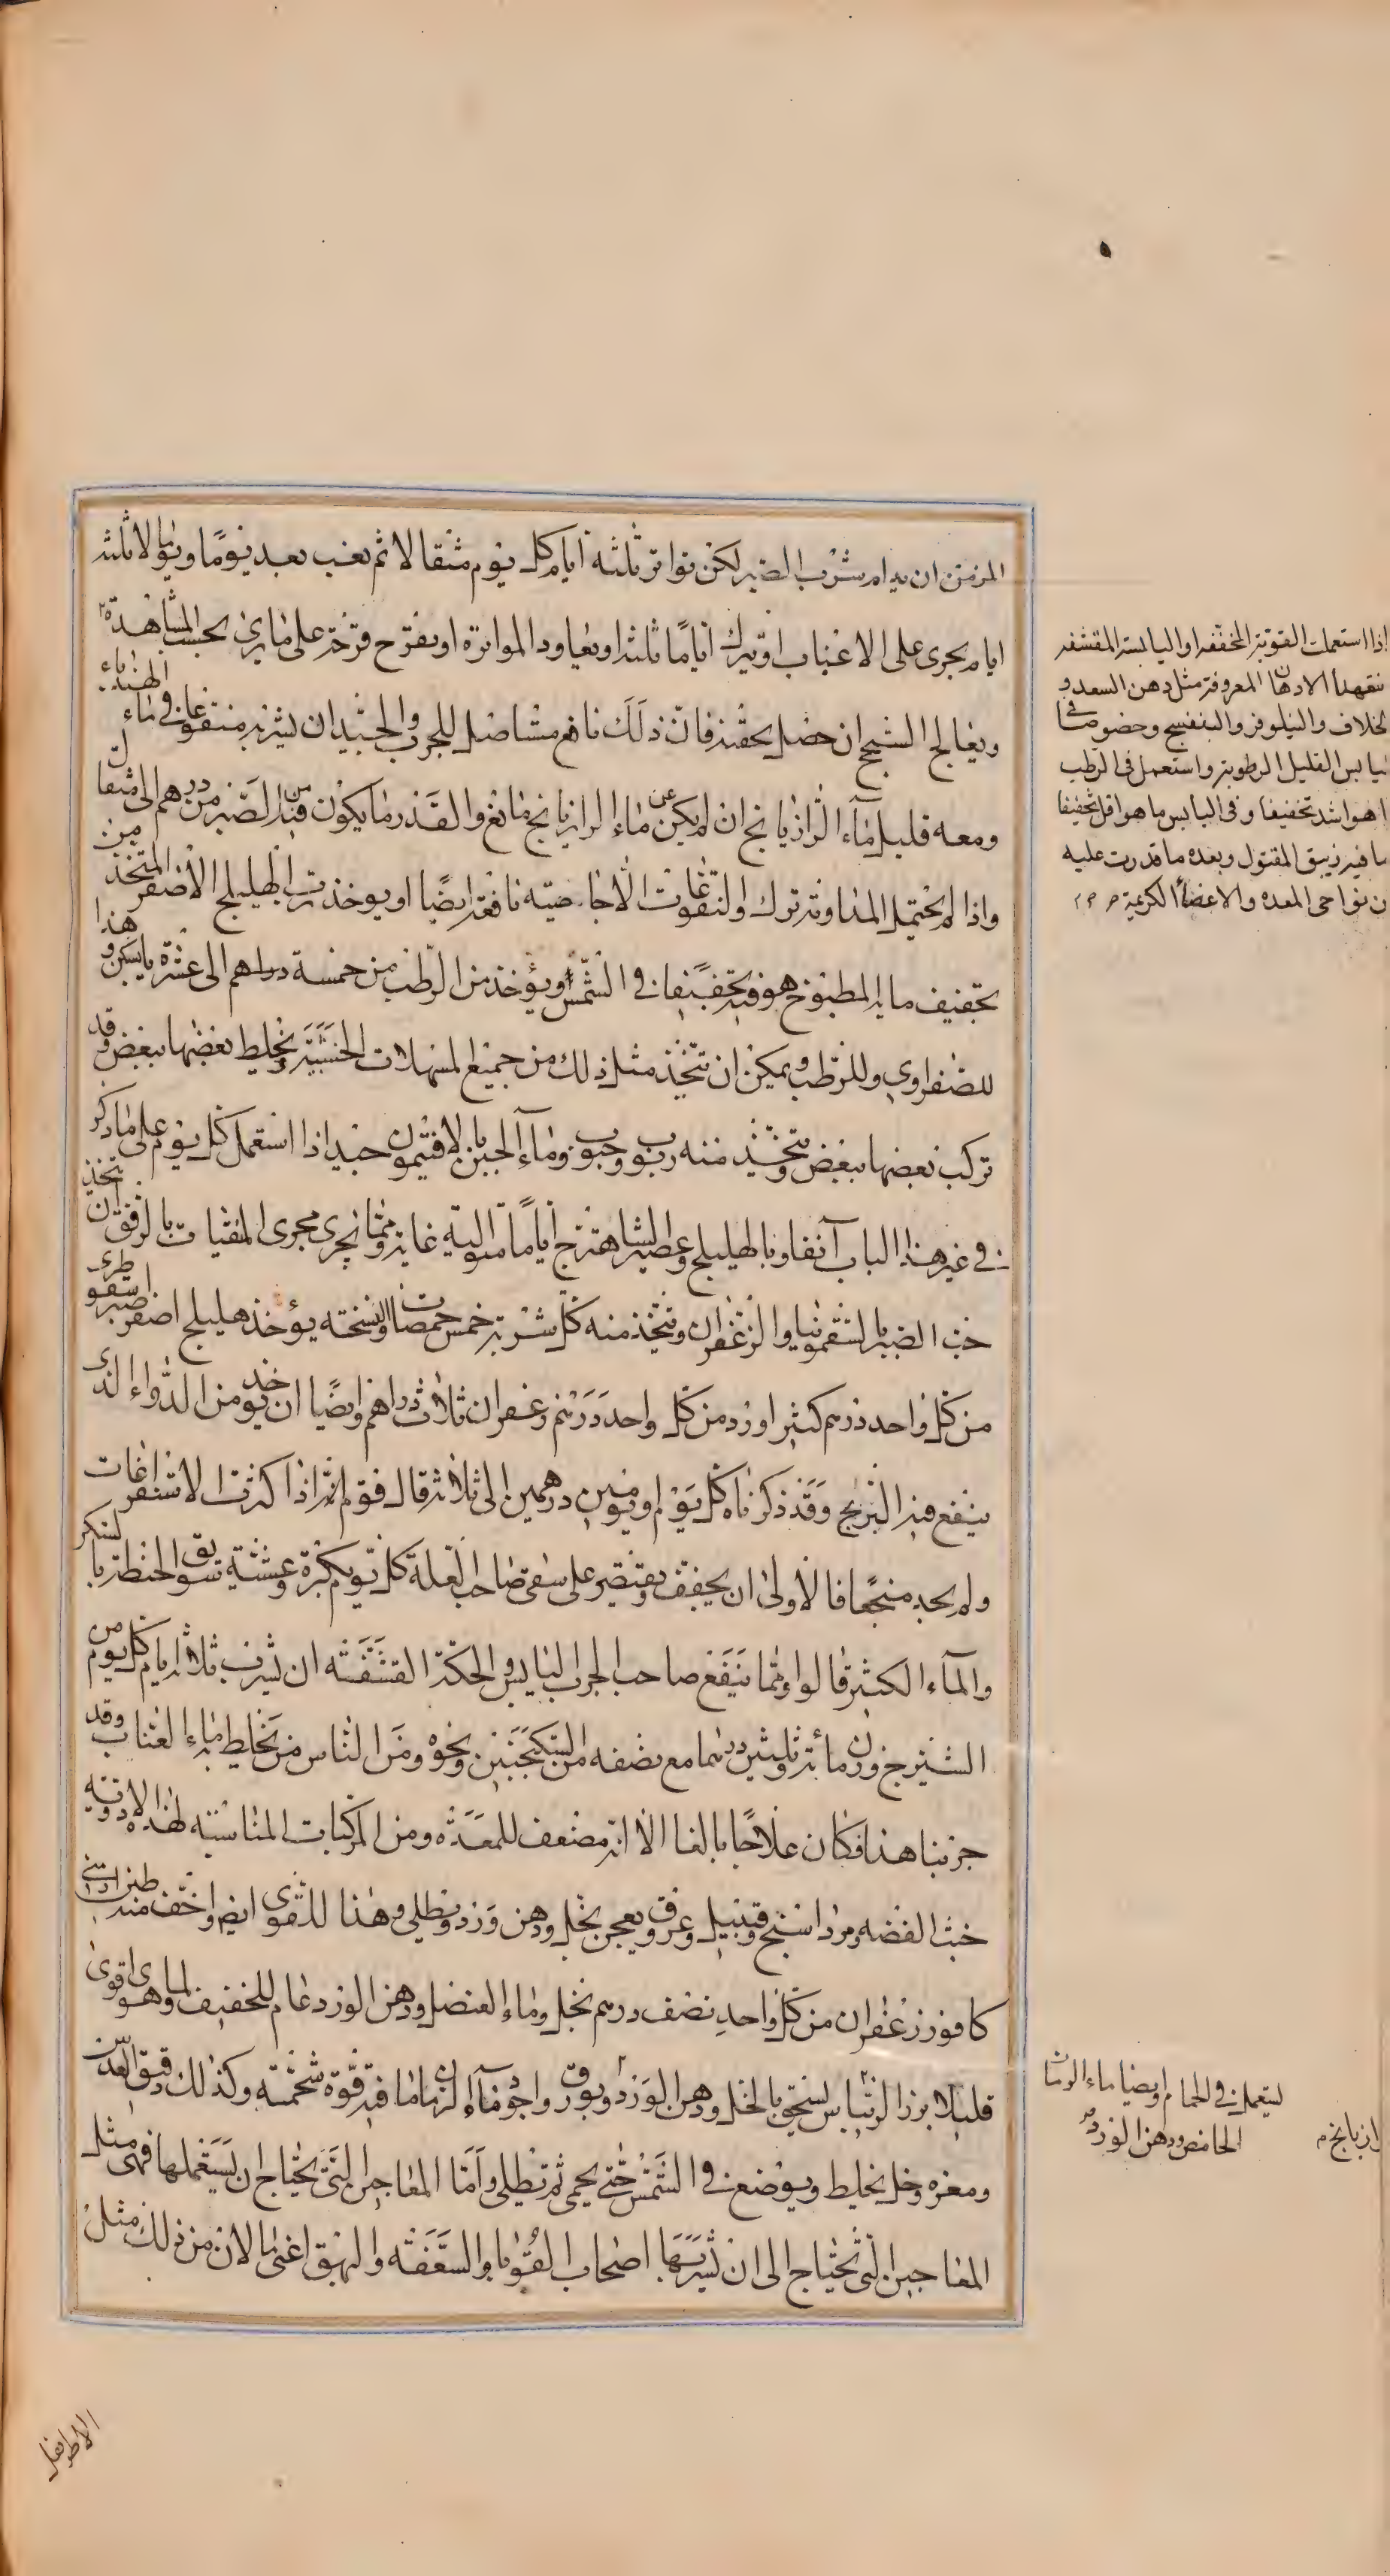 المزمن ان يدام شرب الصبر لكن تواتر ثلثه ايام كل يوم مثقالا ثم يغب بعد يومًا ويومًا لا ثلثه
ايام يجرى على الاغباب او يترك اياما ثلثه او يعاود المواتره او يفرح فرحة على ما يرى بحسب المشاهدة
ويعالج السحج ان حصل بحقنه فان ذلك نافع مستاصل للجرب والجيد ان يشربه منقوعا فى ماء الهندباء
ومعه قليل ماء الرازيانج ان لم يكن عن ماء الرازيانج مانع والقدر ما يكون فيه من الصبر من درهم الى مثقال
واذا لم يحتمل المداومه ترك والنقوعات الاجاصيه نافعه ايضًا او يوخذ زر الهليلج الاصفر المتخذ من
تجفيف مايه المطبوخ هو فيه تجفيفا فى الشمس ويؤخذ من الرطب من خمسة دراهم الى عشرة بالسكر وهذا
للصفراوي وللرطب ويمكن ان تتخذ مثل ذلك من جميع المسهلات الخشبيه ويخلط بعضها ببعض وقد
تركب بعضها ببعض ويتخذ منه ربوب وحبوب وماء الجبن بالافتيمون جيد اذا استعمل كل يوم على ما ذكر
فى غير هذا الباب آنفا وبالهليلج وعصير الشاهترج اياما متواليه غاية ومما يجرى مجرى المنقيات بالرفق ان يتخذ
حب الصبر بالسقمونيا والزعفران ويتخذ منه كل شربة خمس حمصات والنسخته يؤخذ هليلج اصفر صبر اسقوطرى
من كل واحد درهم كثيرا ورد من كل واحد درهم زعفران ثلاث دراهم وايضًا ان يؤخذ من الدواء الذى
ينفع فيه البرنج وقد ذكرناه كل يوم او يومين درهمين الى ثلاثه قال قوم انه اذا كثرت الاستفراغات
ولم يجد منجحًا فالاولى ان يخفف ويقتصر على سقى صاحب العلة كل يوم بكرة وعشية سويق الحنطة بالسكر
والماء الكثير قالوا ومما ينفع صاحب الجرب اليابس والحكة القشفه ان يشرب ثلاثه ايام كل يوم من
الشيرج وزن مائة وثلثين درهما مع نصفه من السكنجبين ونحوه ومن الناس من يخلط به ماء العناب وقد
جربنا هذا فكان علاجًا بالغا الا انه مضعف للمعدة ومن المركبات المناسبه لهذا الادويه
خبث الفضه ومرداسنج وقنبيل وعروق ويعجن بخل ودهن ورد ويطلى وهذا للقوى ايضا واخف منه طين ارمنى
كافور زعفران من كل واحد نصف درهم بخل وماء العنصل ودهن الورد عام للخفيف ولما هو اقوى
قليلا بزر الريباس يسحق بالخل ودهن الورد وبورق واجود ماء الرمان ما فيه قوة شحمته وكذلك دقيق العدس
ومغره وخل يخلط ويوضع فى الشمس حتى يحمى ثم يطلى واما المعاجين التى يحتاج ان يستعملها فهى مثل
المعاجين التى تحتاج الى ان يشربها اصحاب القوبا والسعفه والبهق اغنى الان من ذلك مثل
الاطريفل
اذا استعملت القوية المخففه او اليابسة المقشفه
تتعهد الادهان المعروفة مثل دهن السعد و
الخلاف والنيلوفر والبنفسج وخصوصا فى
اليابس القليل الرطوبة واستعمل فى الرطب
ما هو اشد تخفيفا وفى اليابس ما هو اقل تخفيفا
ما فيه زيبق المقتول وبعده ما قدرت عليه
من نواحى المعده والاعضأ الكريمة
ليستعمل فى الحمام وايضا ماء الرمان
الحامض ودهن الورد
الرازيانج